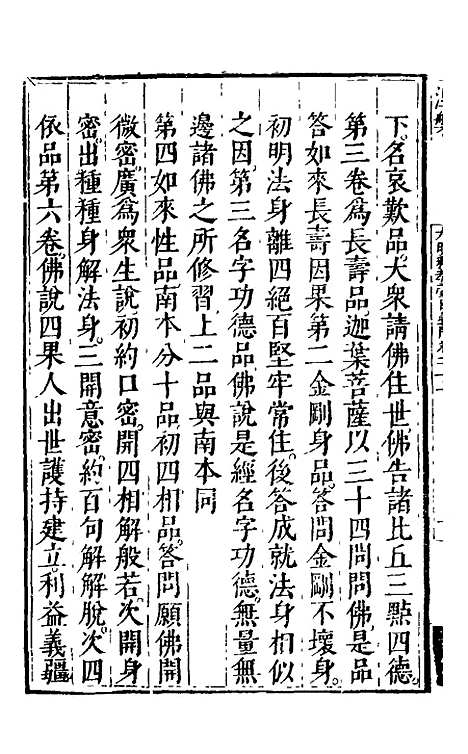 下。名哀歎品。大衆請佛住世。佛告諸比丘三點四德。
第三卷爲長壽品。迦葉菩薩以三十四問問佛。是品
答如來長壽因果。第二金剛身品。答問金剛不壞身。
初明法身離四絕百堅牢常住。後答成就法身相似
之因。第三名字功德品。佛說是經名字功德。無量無
邊諸佛之所修習。上二品與南本同
第四如來性品。南本分十品。初四相品。答問願佛開
微密。廣爲衆生說。初約口密。開四相解般若。次開身
密。出種種身解法身。三開意密。約百句解解脫。次四
依品第六卷。佛說四果人出世護持建立。利益義疆